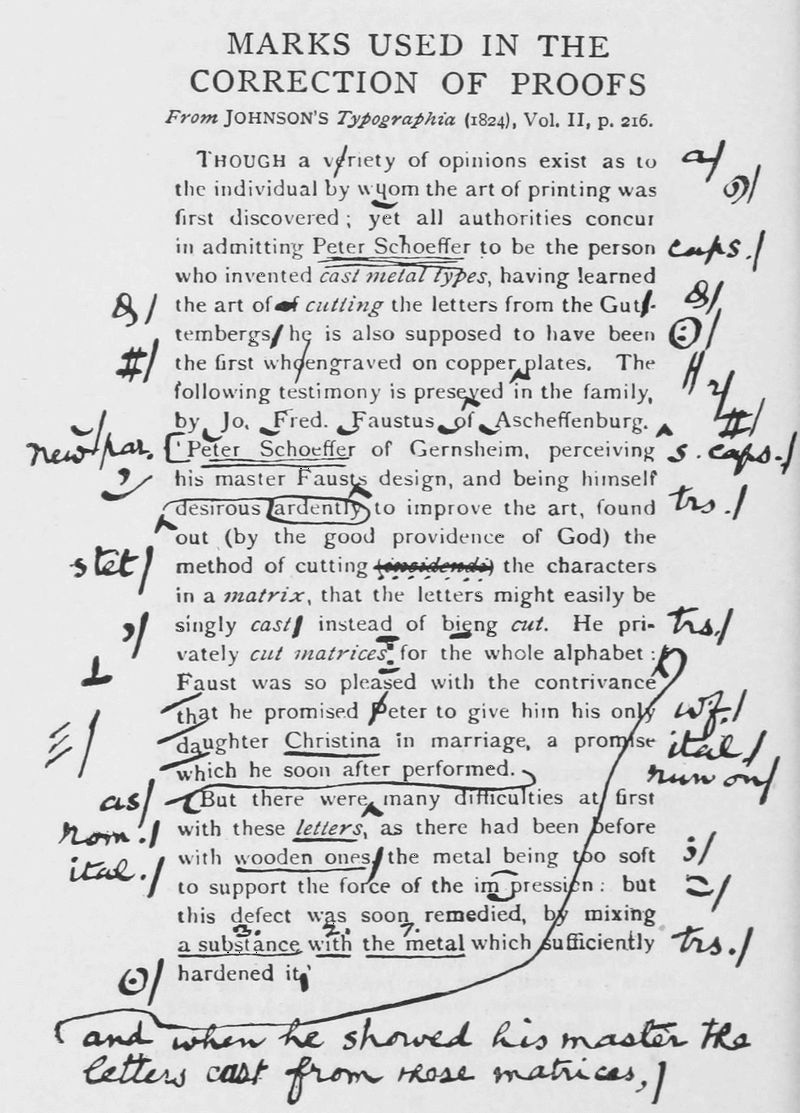 MARKS USED IN THE
CORRECTION OF PROOFS
From JOHNSON'S Typographia (1824), Vol. II, p. 216.
THOUGH a v/riety of opinions exist as to a/
the individual by wɥom the art of printing was 9/
first discovered ; yet all authorities concur
in admitting Peter Schoeffer to be the person caps./
who invented cast metal types, having learned
the art of of cutting the letters from the Gut/-
tembergs/ he is also supposed to have been ⊙/
#/ the first whoengraved on copper plates. The
following testimony is preseved in the family, r/
by Jo. Fred. Faustus of Ascheffenburg. #/
new par. [' Peter Schoeffer of Gernsheim, perceiving s. caps./
his master Fausts design, and being himself
desirous ardently to improve the art, found trs./
out (by the good providence of God) the
stet/ method of cutting (incidendi) the characters
in a matrix, that the letters might easily be
,/ singly cast/ instead of bieng cut. He pri- trs./
⊥ vately cut matrices for the whole alphabet :
Faust was so pleased with the contrivance
that he promised peter to give him his only wf./
daughter Christina in marriage, a promise ital/
which he soon after performed. run on/
as/ But there were many difficulties at first
rom./ with these letters, as there had been before
ital./ with wooden ones/ the metal being too soft ;/
to support the force of the im pression : but
this defect was soon remedied, by mixing
3. 2. 1.
a substance with the metal which sufficiently trs./
⊙/ hardened it,'
and when he showed his master the
letters cast from these matrices,/